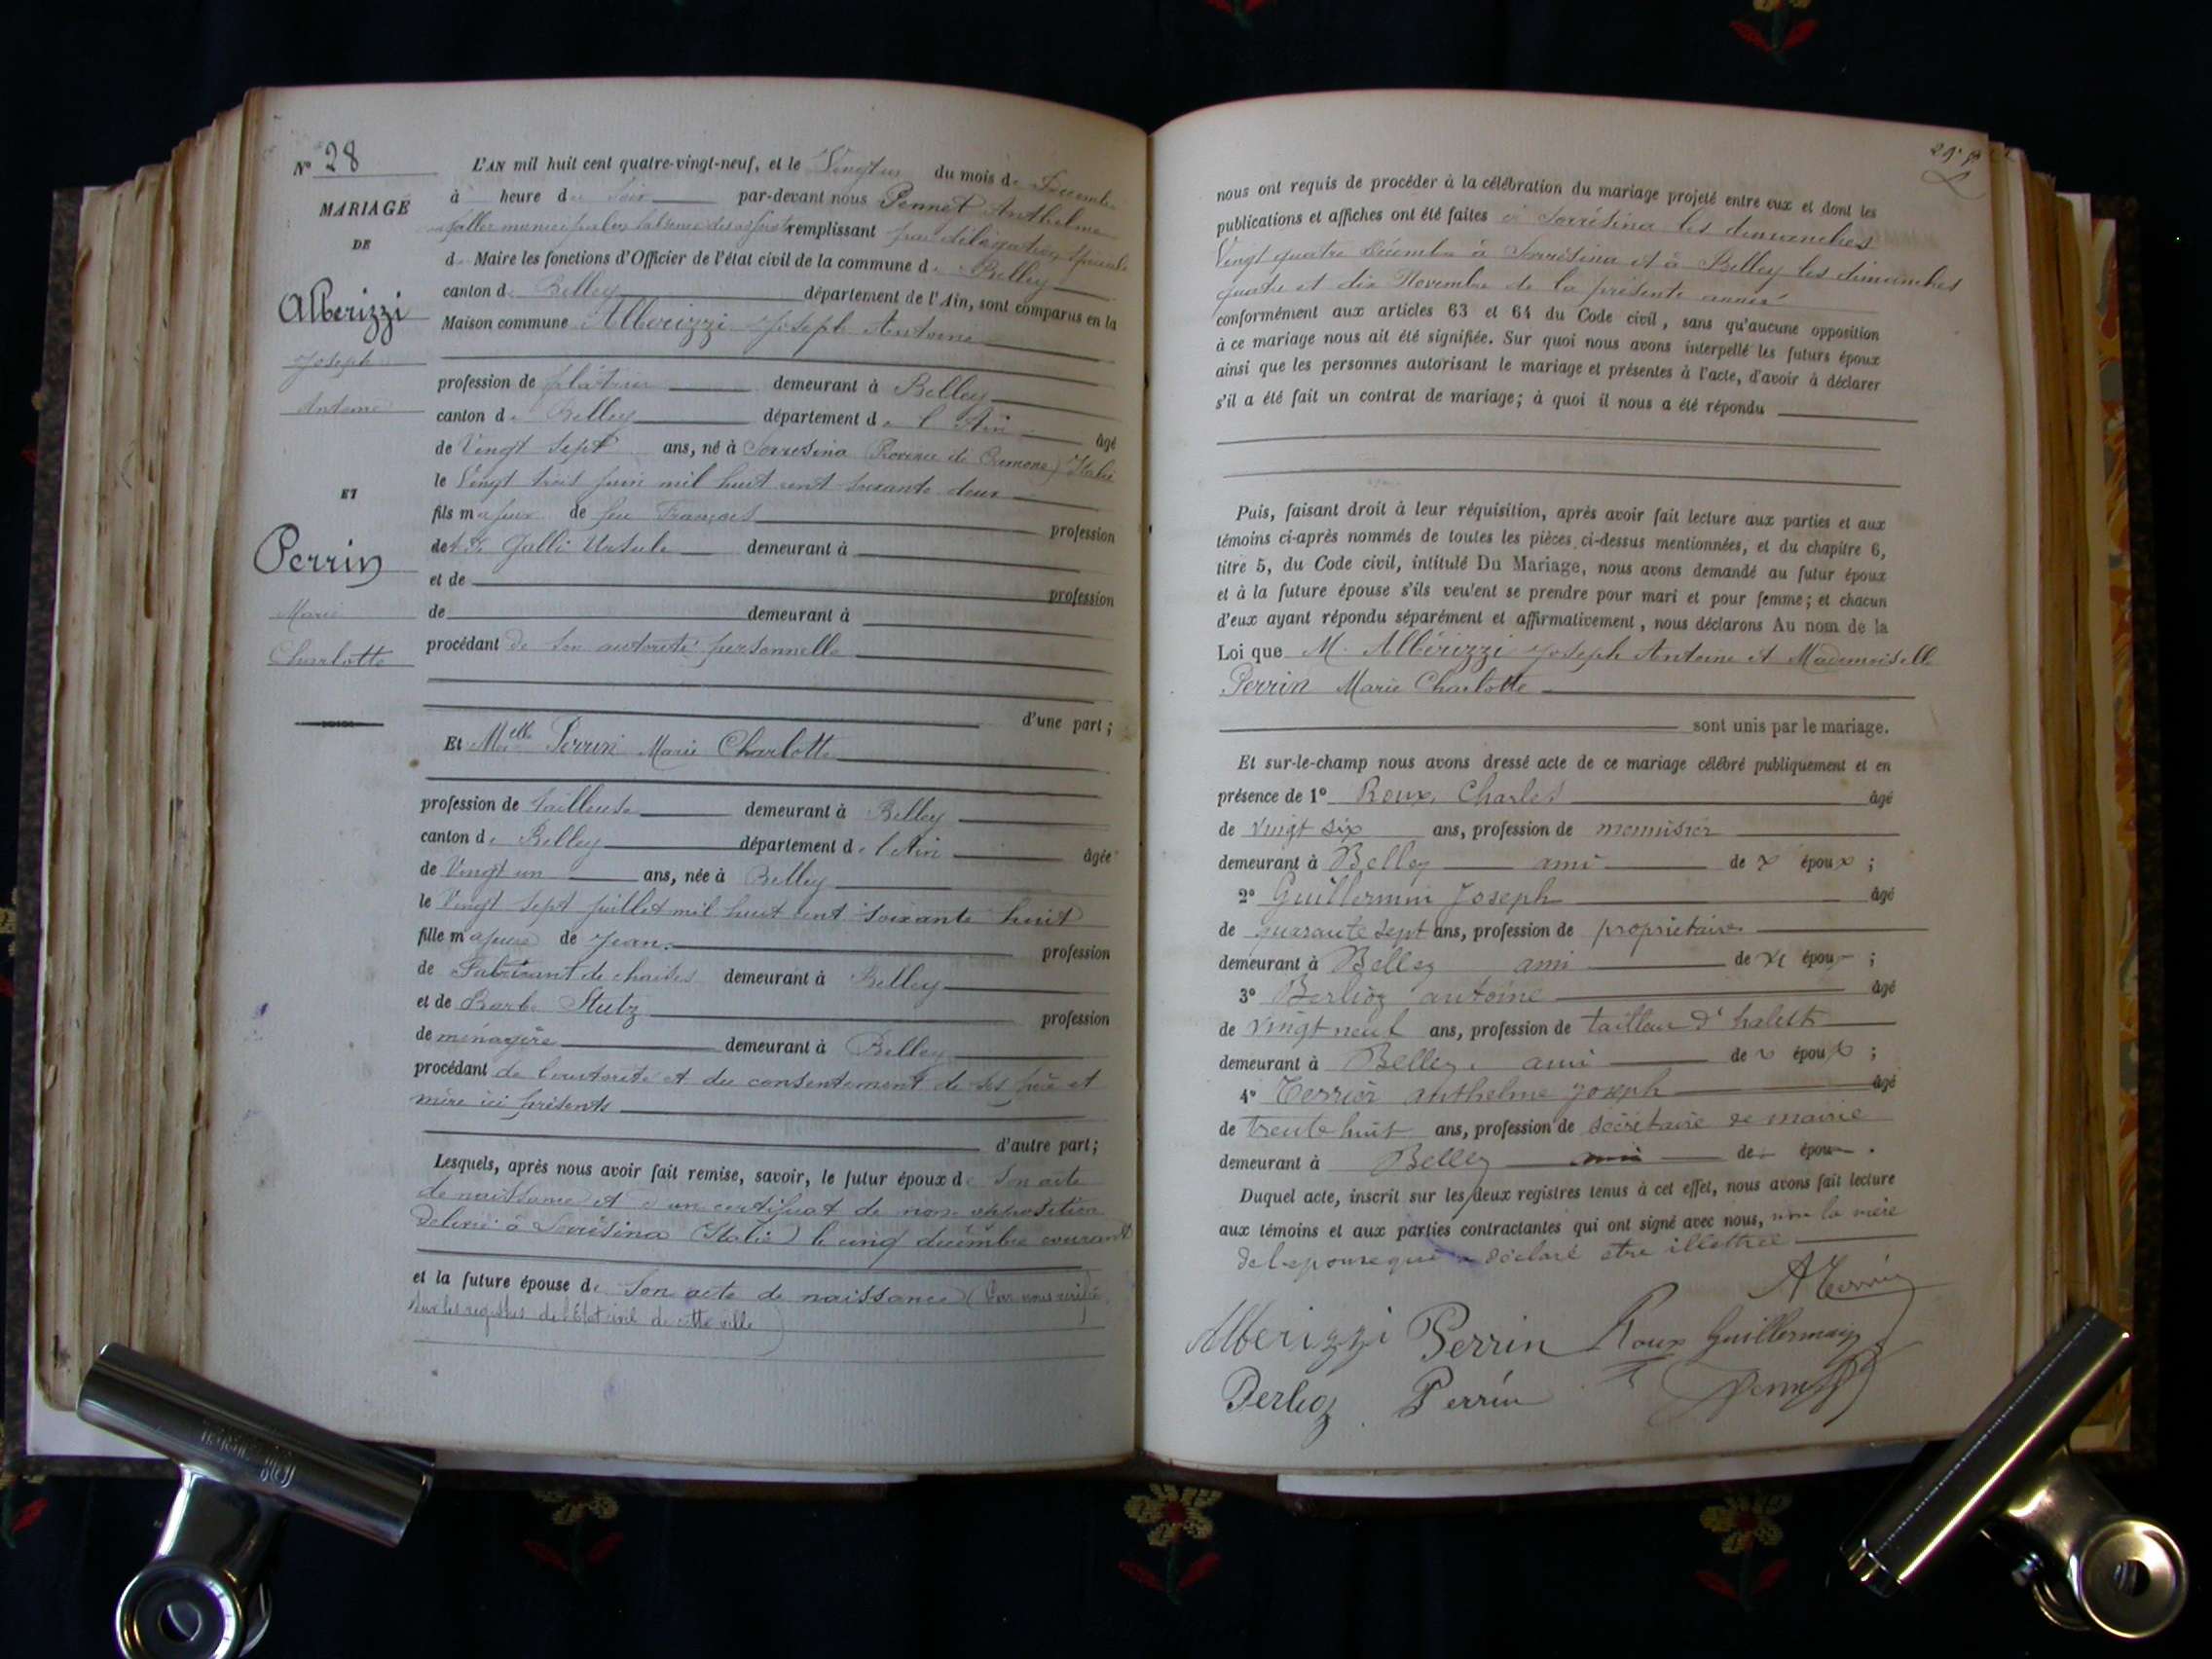 N° 28
MARIAGE
DE
Alberizzi
Joseph
Antoine
ET
Perrin
Marie
Charlotte
L'AN mil huit cent quatre-vingt-neuf, et le Vingt un du mois de Décembre
à heure du Soir par-devant nous Pennet Anthelme
remplissant par délégation spéciale
de Maire les fonctions d'Officier de l'état civil de la commune de Belley
canton de Belley département de l'Ain, sont comparus en la
Maison commune Alberizzi Joseph Antoine
profession de plâtrier demeurant à Belley
canton de Belley département de l'Ain âgé
de Vingt sept ans, né à Sorresina (Province de Cremone) Italie
le Vingt trois juin mil huit cent soixante deux
fils majeur de feu François profession
de Galli Ursule demeurant à
et de profession
de demeurant à
procédant de son autorité personnelle
d'une part;
Et Melle Perrin Marie Charlotte
profession de tailleuse demeurant à Belley
canton de Belley département de l'Ain âgée
de Vingt un ans, née à Belley
le Vingt sept juillet mil huit cent soixante huit
fille majeure de Jean profession
de Fabricant de chaises demeurant à Belley
et de Barbe Stutz profession
de ménagère demeurant à Belley
procédant de l'autorité et du consentement de ses père et
mère ici présents
d'autre part;
Lesquels, après nous avoir fait remise, savoir, le futur époux de Son acte
de naissance et d'un certificat de non opposition
délivré à Sorrésina (Italie) le cinq décembre courant
et la future épouse de Son acte de naissance (Par nous vérifié
sur les registres de l'Etat civil de cette ville)
nous ont requis de procéder à la célébration du mariage projeté entre eux et dont les
publications et affiches ont été faites à Sorrésina les dimanches
Vingt quatre Décembre à Sorrésina et à Belley les dimanches
quatre et dix Novembre de la présente année
conformément aux articles 63 et 64 du Code civil, sans qu'aucune opposition
à ce mariage nous ait été signifiée. Sur quoi nous avons interpellé les futurs époux
ainsi que les personnes autorisant le mariage et présentes à l'acte, d'avoir à déclarer
s'il a été fait un contrat de mariage; à quoi il nous a été répondu
Puis, faisant droit à leur réquisition, après avoir fait lecture aux parties et aux
témoins ci-après nommés de toutes les pièces ci-dessus mentionnées, et du chapitre 6,
titre 5, du Code civil, intitulé Du Mariage, nous avons demandé au futur époux
et à la future épouse s'ils veulent se prendre pour mari et pour femme; et chacun
d'eux ayant répondu séparément et affirmativement, nous déclarons Au nom de la
Loi que M. Albérizzi Joseph Antoine et Mademoiselle
Perrin Marie Charlotte
sont unis par le mariage.
Et sur-le-champ nous avons dressé acte de ce mariage célébré publiquement et en
présence de 1° Roux Charles âgé
de vingt six ans, profession de menuisier
demeurant à Belley ami de x époux;
2° Guillermin Joseph âgé
de quarante sept ans, profession de propriétaire
demeurant à Belley ami de x époux;
3° Berlioz antoine âgé
de vingt neuf ans, profession de tailleur d'habits
demeurant à Belley ami de x époux;
4° Terrier anthelme joseph âgé
de trente huit ans, profession de secrétaire de mairie
demeurant à Belley ami de épou
Duquel acte, inscrit sur les deux registres tenus à cet effet, nous avons fait lecture
aux témoins et aux parties contractantes qui ont signé avec nous, non la mère
de l'epouse qui a déclaré etre illettrée
ATerrier
Alberizzi Perrin Roux Guillermin
Berlioz Perrin Pennet